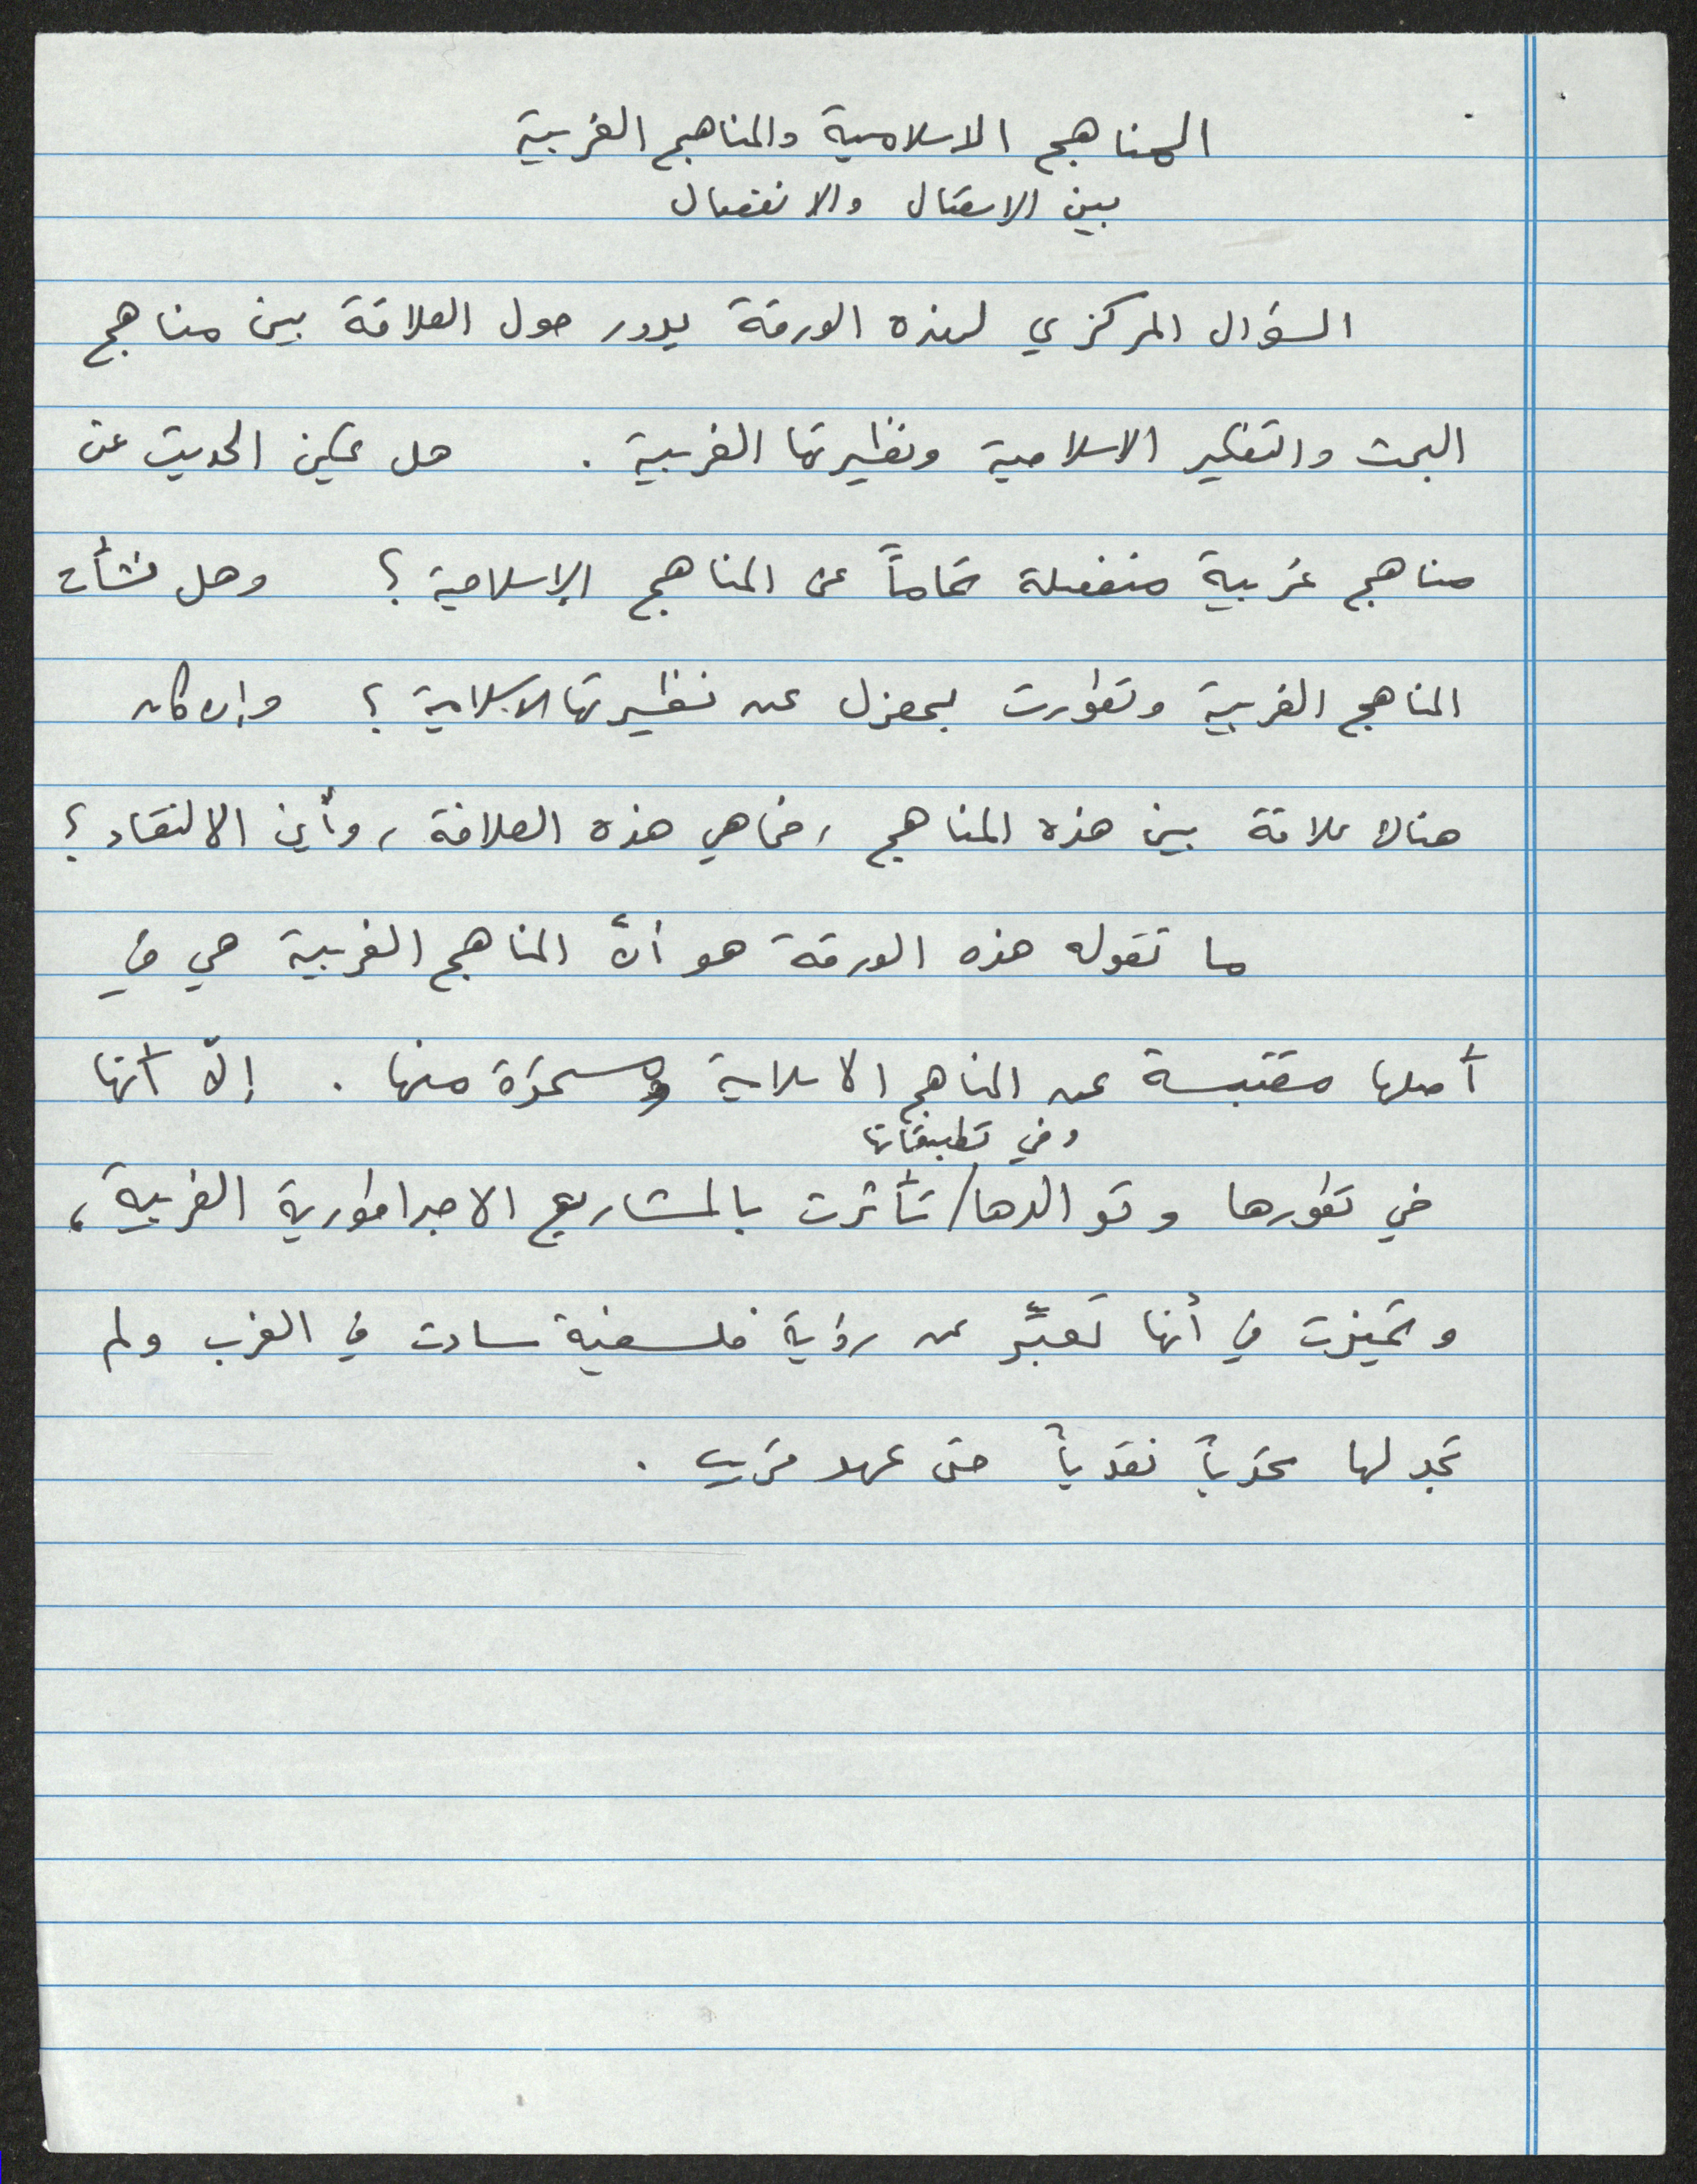 المناهج الاسلامية والمناهج الغربية
بين الاتصال والانفصال
السؤال المركزي لهذه الورقة يدور حول العلاقة بين مناهج
البحث والتفكير الاسلامية ونظيرتها الغربية . هل يمكن الحديث عن
مناهج غربية منفصلة تماماً عن المناهج الإسلامية ؟ وهل نشأت
المناهج الغربية وتطورت بمعزل عن نظيرتها الاسلامية ؟ وإن كان
هناك علاقة بين هذه المناهج ، فما هي هذه العلاقة ، وأين الالتقاء ؟
ما تقوله هذه الورقة هو أنّ المناهج الغربية هي في
أصلها مقتبسة عن المناهج الاسلامية ومستمدّة منها . إلّا أنها
وفي تطبيقاتها
في تطورها وتوالدها/تأثرت بالمشاريع الامبراطورية الغربية ،
وتميزت في أنها تعبِّر عن رؤية فلسفية سادت في الغرب ولم
تجد لها تحدّياً نقديّاً حتى عهد قريب .